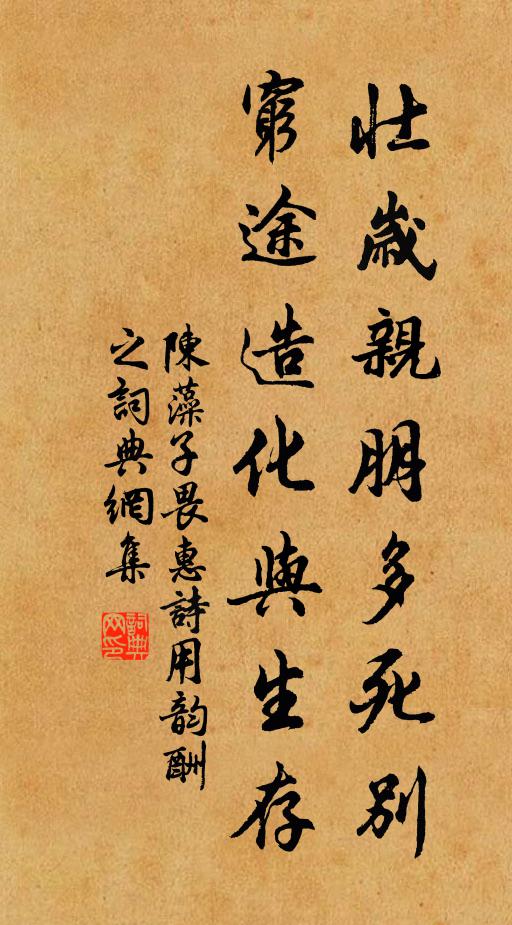 壯歲親朋多死別
窮途造化與生存
陳藻子畏惠詩用韵酬
之詞典網集
詞典
网印